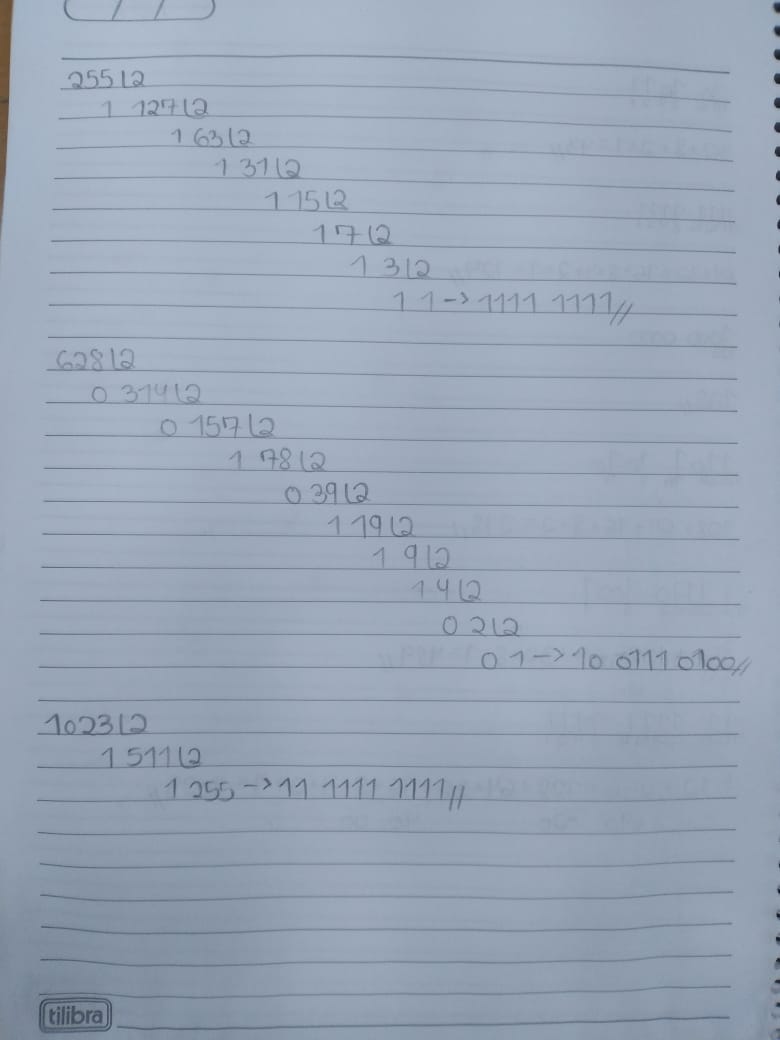 255 2
1 127 2
1 63 2
1 31 2
1 15 2
1 7 2
1 3 2
1 1 -> 1111 1111//
628 2
0 314 2
0 157 2
1 78 2
0 39 2
1 19 2
1 9 2
1 4 2
0 2 2
0 1 -> 10 0111 0100//
1023 2
1 511 2
1 255 -> 11 1111 1111//
tilibra